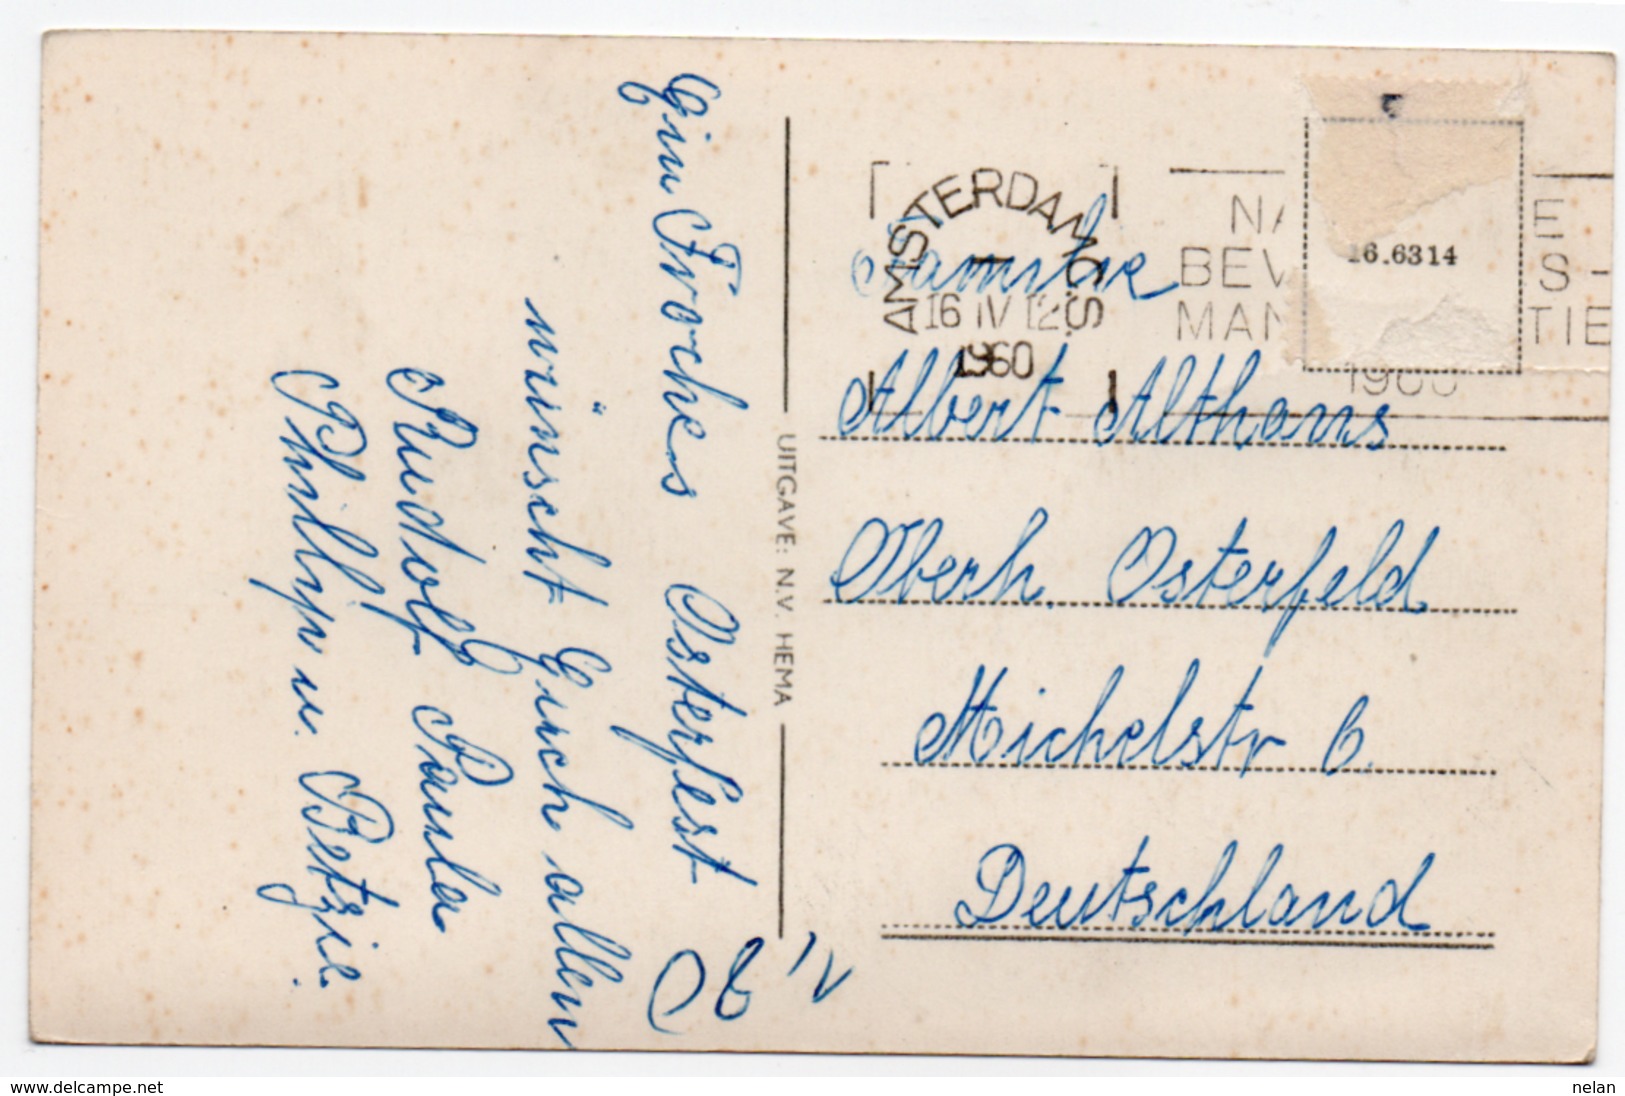 Ein Frohes Osterfest
wünscht Euch allen
Rudolf Paula
Philyp u. Betzie.
UITGAVE: N.V. HEMA
AMSTERDAM C.S.
16 IV 12
1960
NA E
BEV S-
MAN TIE
1960
16.6314
Familie
Albert Althans
Oberh. Osterfeld
Michelstr 6.
Deutschland
www.delcampe.net
nelan